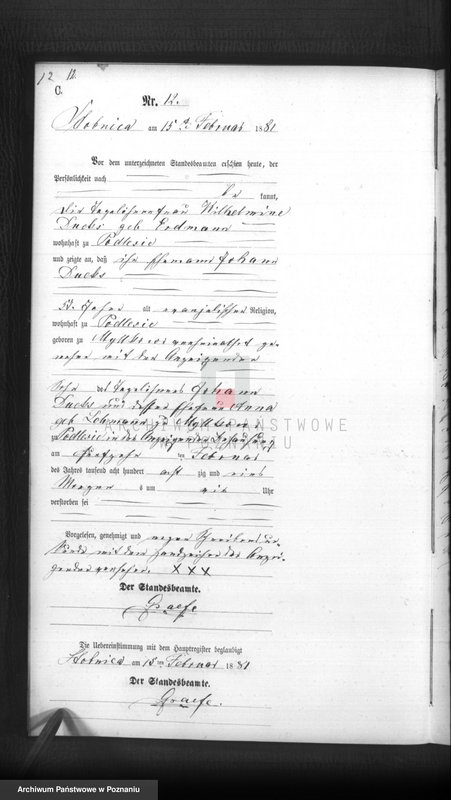 12 12.
C.
Nr. 12.
Stobnica am 15ten Februar 1881
Vor dem unterzeichneten Standesbeamten erschien heute, der
Persönlichkeit nach
be kannt,
die Tagelöhnerfrau Wilhelmine
Ducks geb Erdmann
wohnhaft zu Podlesie
und zeigte an, daß ihr Ehemann Johann
Ducks
53 Jahre alt evangelischer Religion,
wohnhaft zu Podlesie
geboren zu verheirathet ge-
wesen mit der Anzeigenden
Sohn des Tagelöhners Johann
Ducks und dessen Ehefrau Anna
geb Lehmann
ARCHIWUM PAŃSTWOWE
W POZNANIU
zu Podlesie in der Anzeigenden Behausung
am ten Februar
des Jahres tausend acht hundert acht zig und eins
Morgen s um Uhr
verstorben sei
Vorgelesen, genehmigt und wegen Schreibens un-
kunde mit dem Handzeichen der Anzei-
genden versehen. XXX
Der Standesbeamte.
Graefe
Die Uebereinstimmung mit dem Hauptregister beglaubigt
Stobnica am 15ten Februar 1881
Der Standesbeamte.
Graefe.
Archiwum Państwowe w Poznaniu